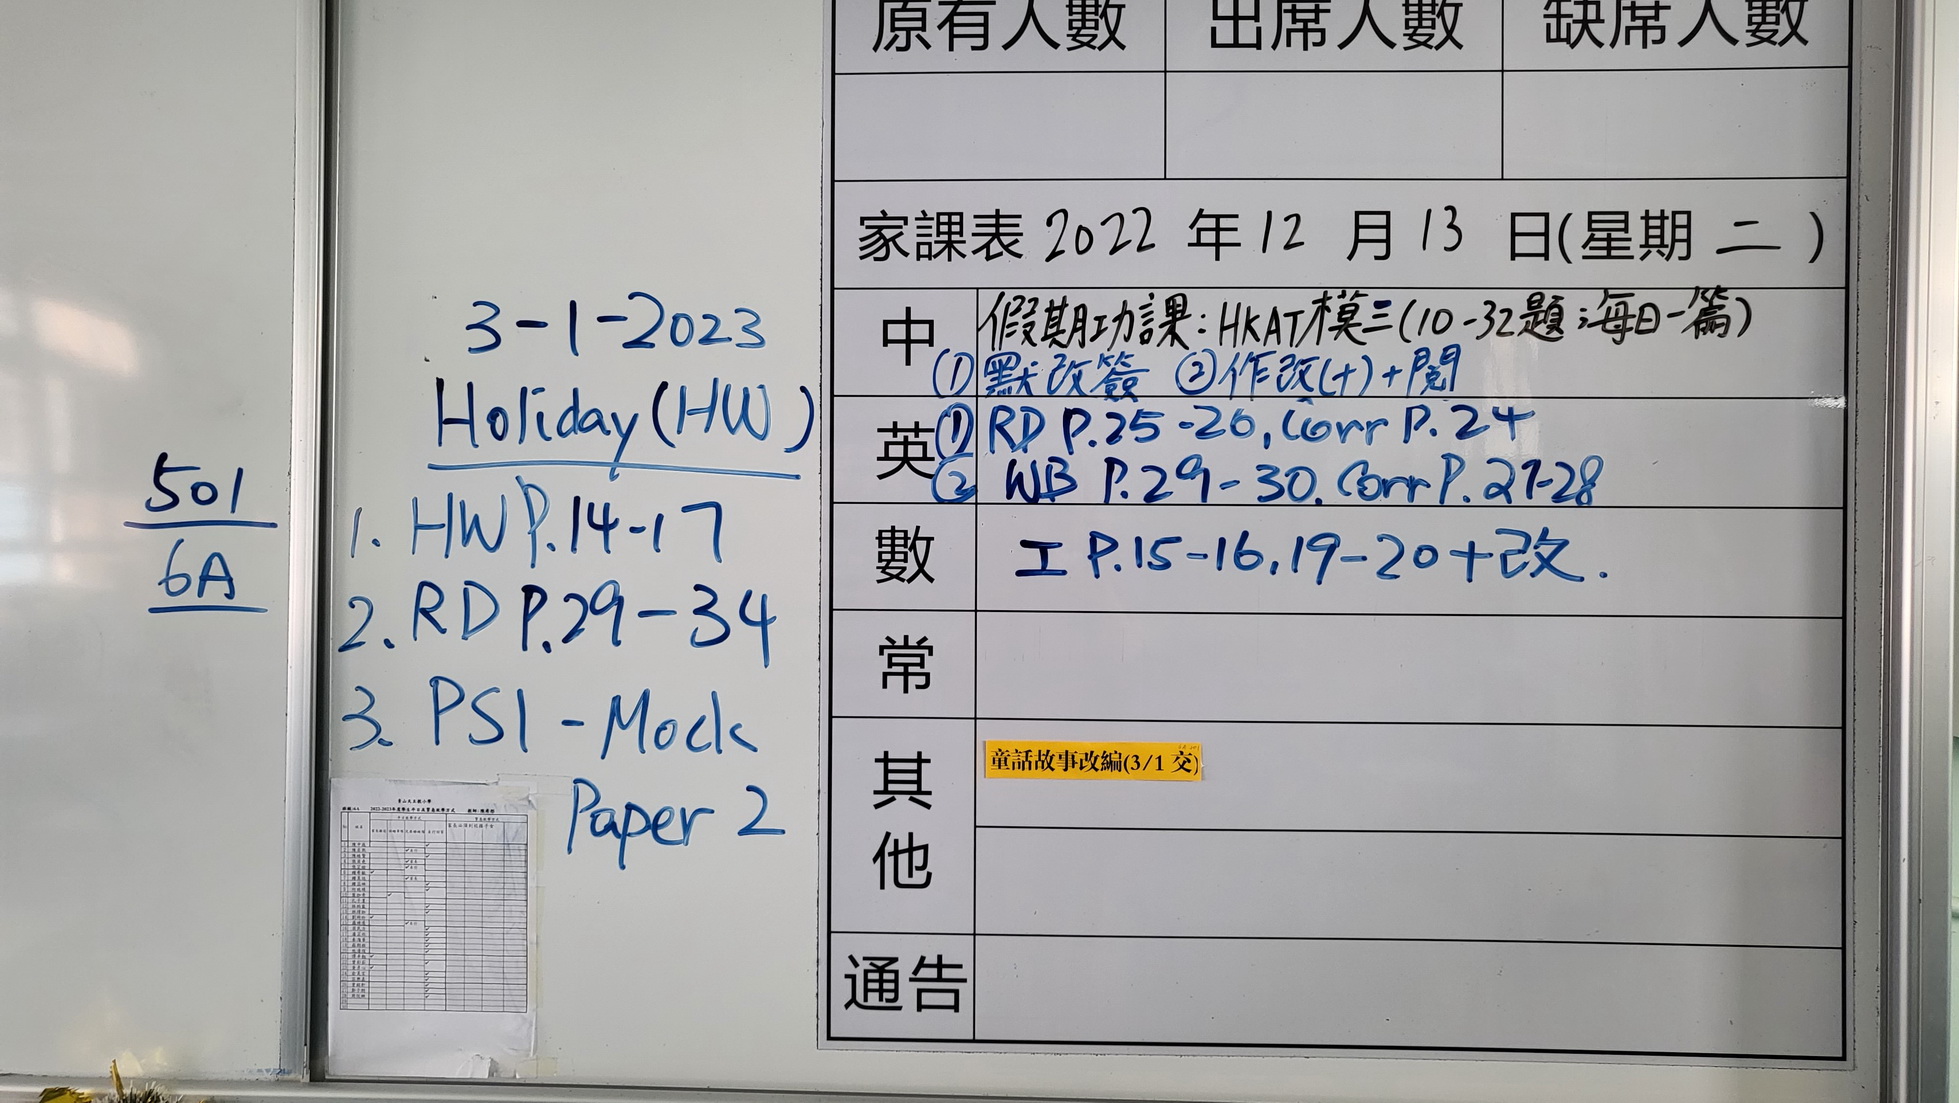 501
6A
3-1-2023
Holiday (HW)
1. HW P.14-17
2. RD P.29-34
3. PS1 - Mock
Paper 2
原有人數 出席人數 缺席人數
家課表 2022 年 12 月 13 日(星期 二 )
中 假期功課: HKAT模三(10-32題;每日一篇)
① 默改簽 ② 作改(+)+閱
英 ① RD P.25-26, Corr P.24
② WB P.29-30. Corr P.27-28
數 工 P.15-16, 19-20+改.
常
其他
童話故事改編(3/1 交)
通告